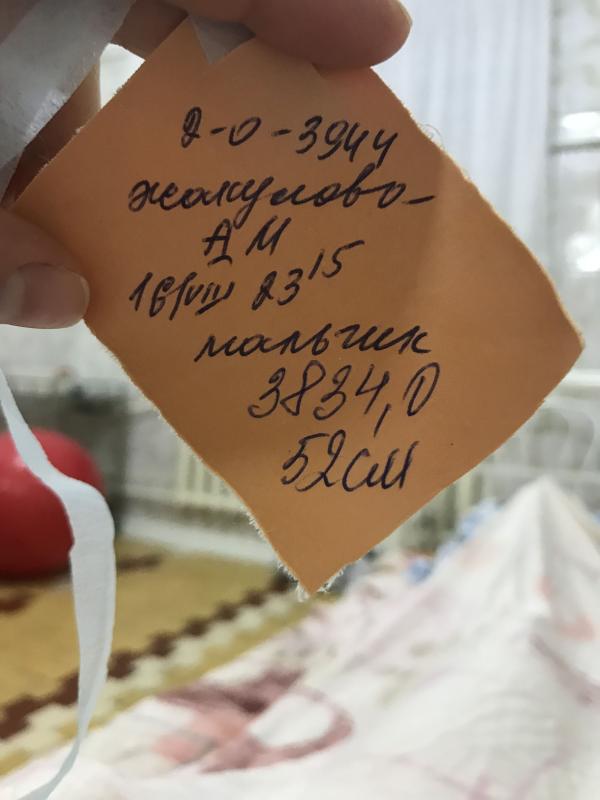 2-0-3944
Жакулова-
А М
16/VIII 23 15
мальчик
3834,0
52см